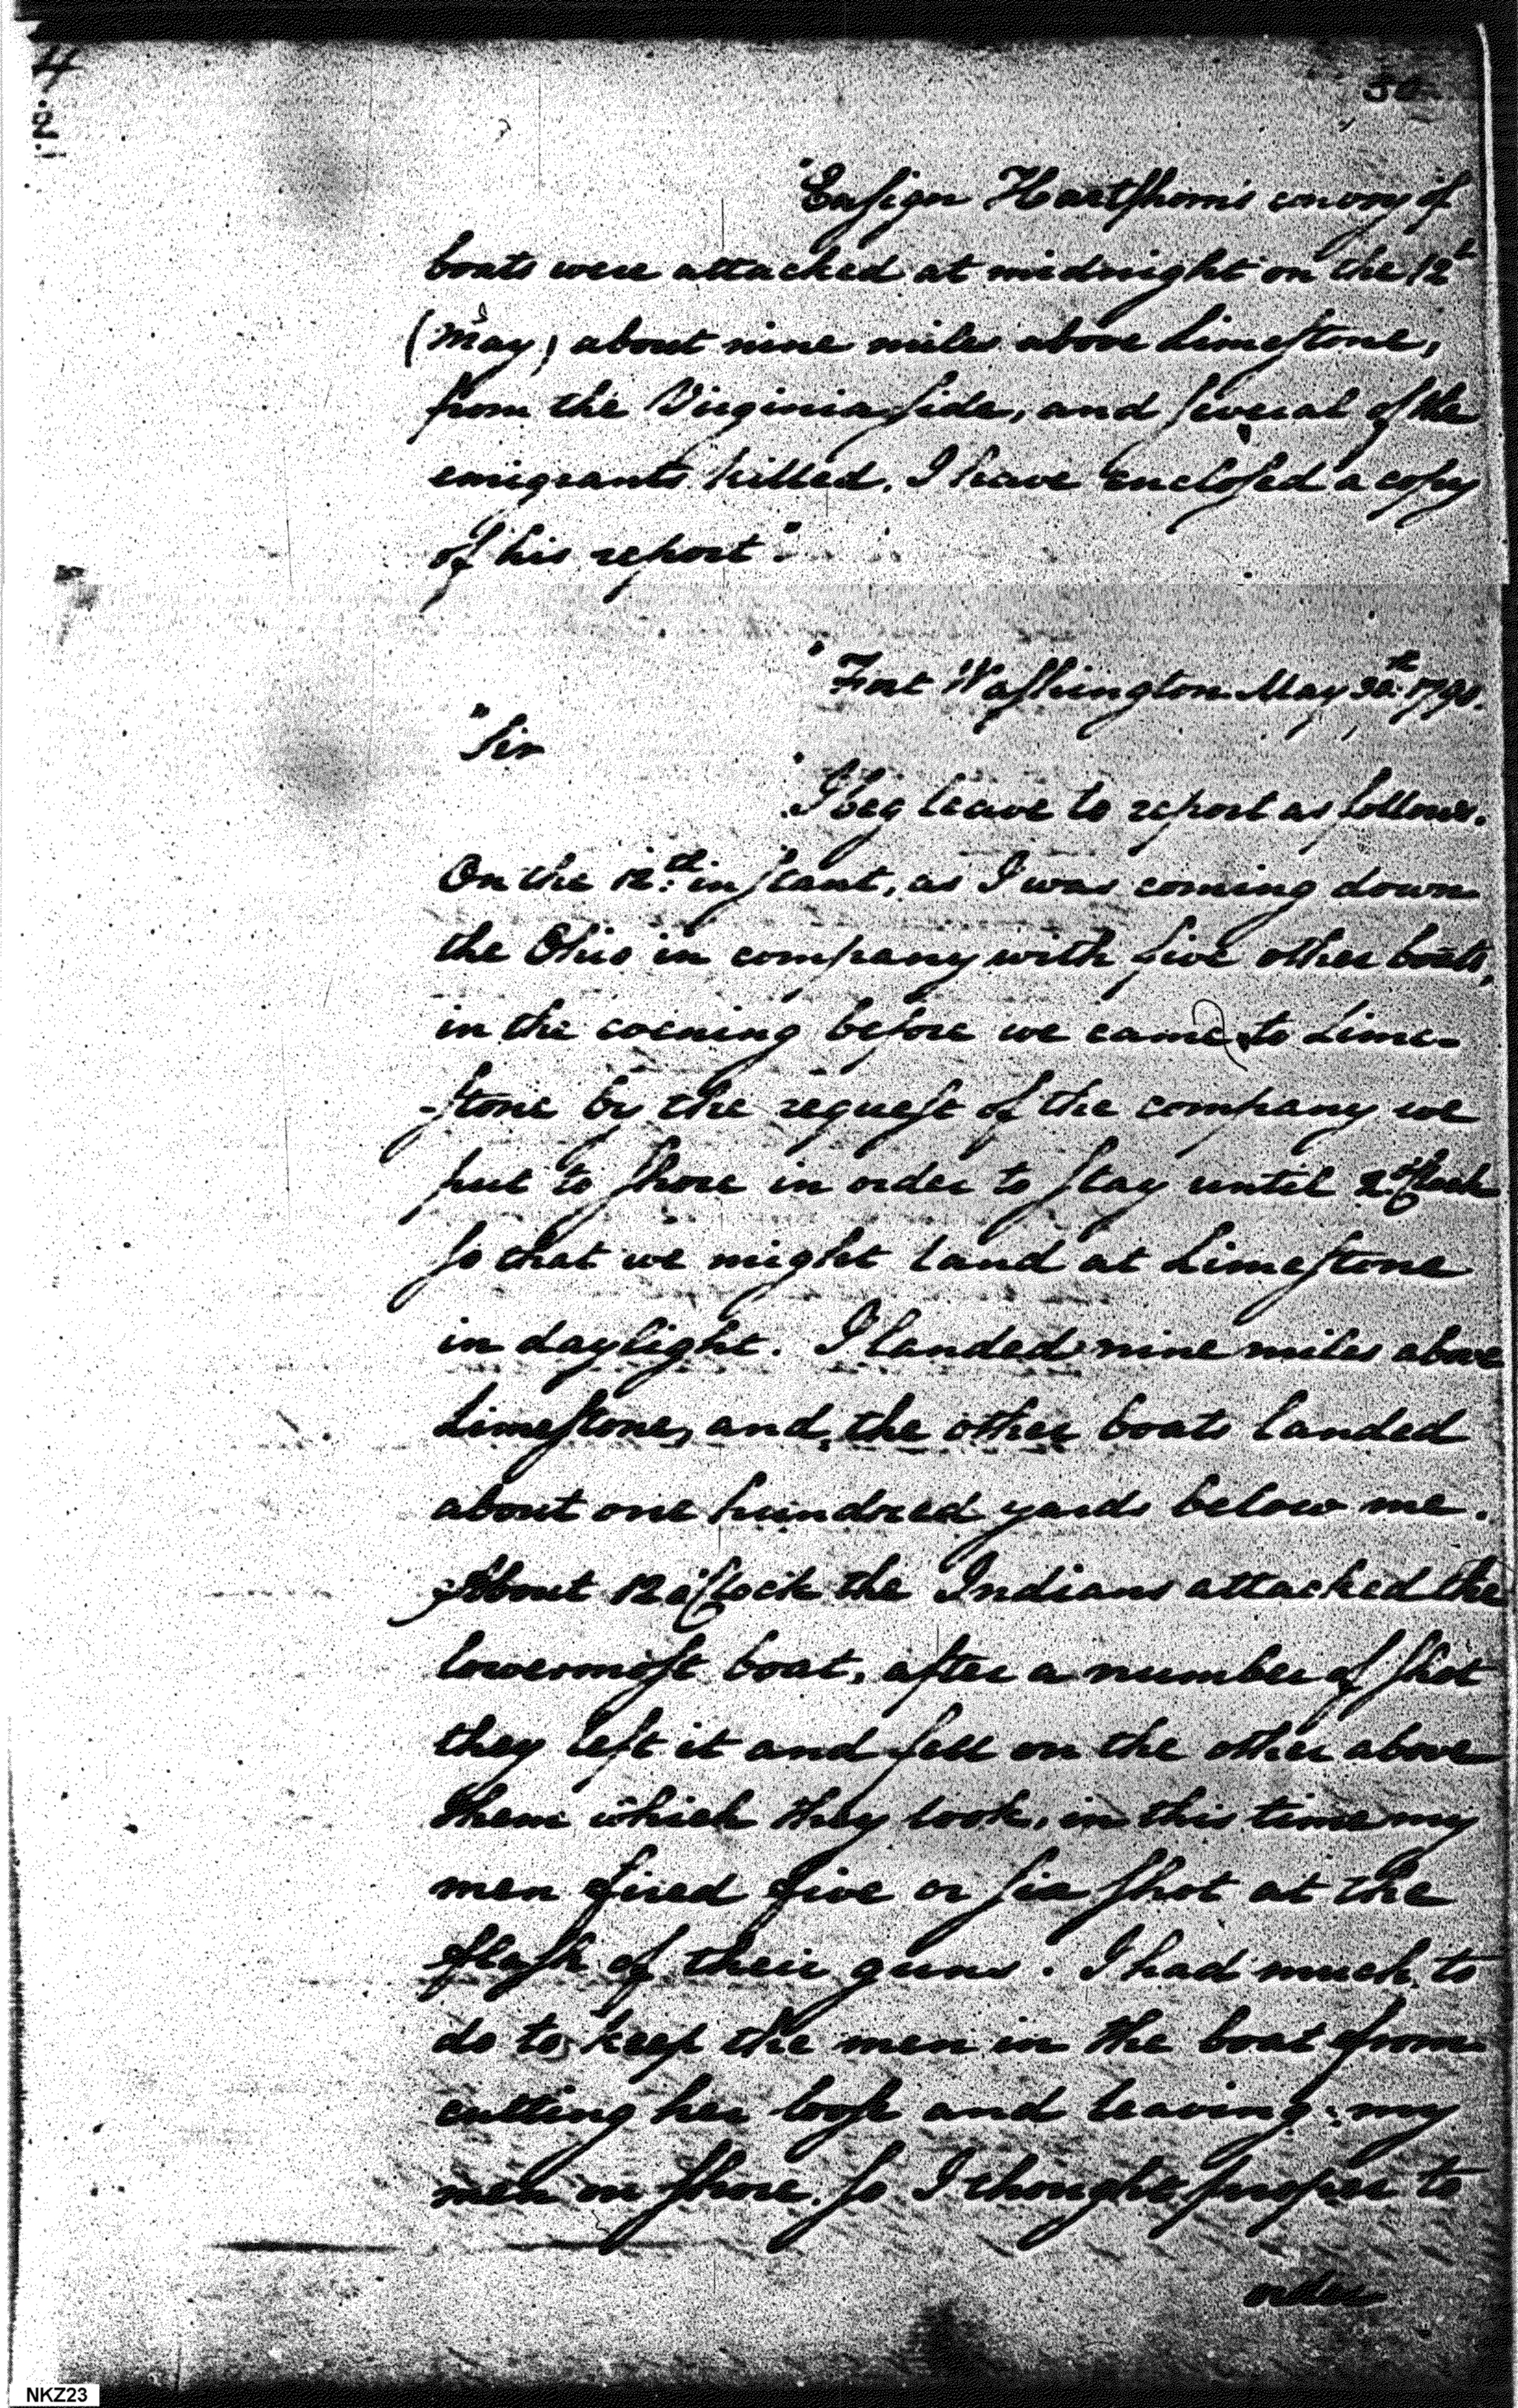 "Ensign Hartshorn's convoy of
boats were attacked at midnight on the 12th
(May) about nine miles above Limestone,
from the Virginia side, and several of the
emigrants killed. I have enclosed a copy
of his report".
"Fort Washington May 30th 1790.
"Sir
"I beg leave to report as follows.
On the 12th instant, as I was coming down
the Ohio in company with five other boats,
in the evening before we came to Lime-
-stone by the request of the company we
put to shore in order to stay until 2 oClock
so that we might land at Limestone
in daylight. I landed nine miles above
Limestone, and, the other boats landed
about one hundred yards below me.
About 12 oClock the Indians attacked the
lowermost boat, after a number of shot
they left it and fell on the other above
them which they took, in this time my
men fired five or six shot at the
flash of their guns. I had much to
do to keep the men in the boat from
cutting her loose and leaving my
men on shore. so I thought proper to
order
NKZ23